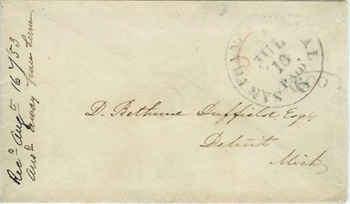 Recd Augt 16/53
Ansd
SAN FRAN
CAL
JUL
16
PAID
6
D. Bethune Duffield Esqr
Detroit
Mich